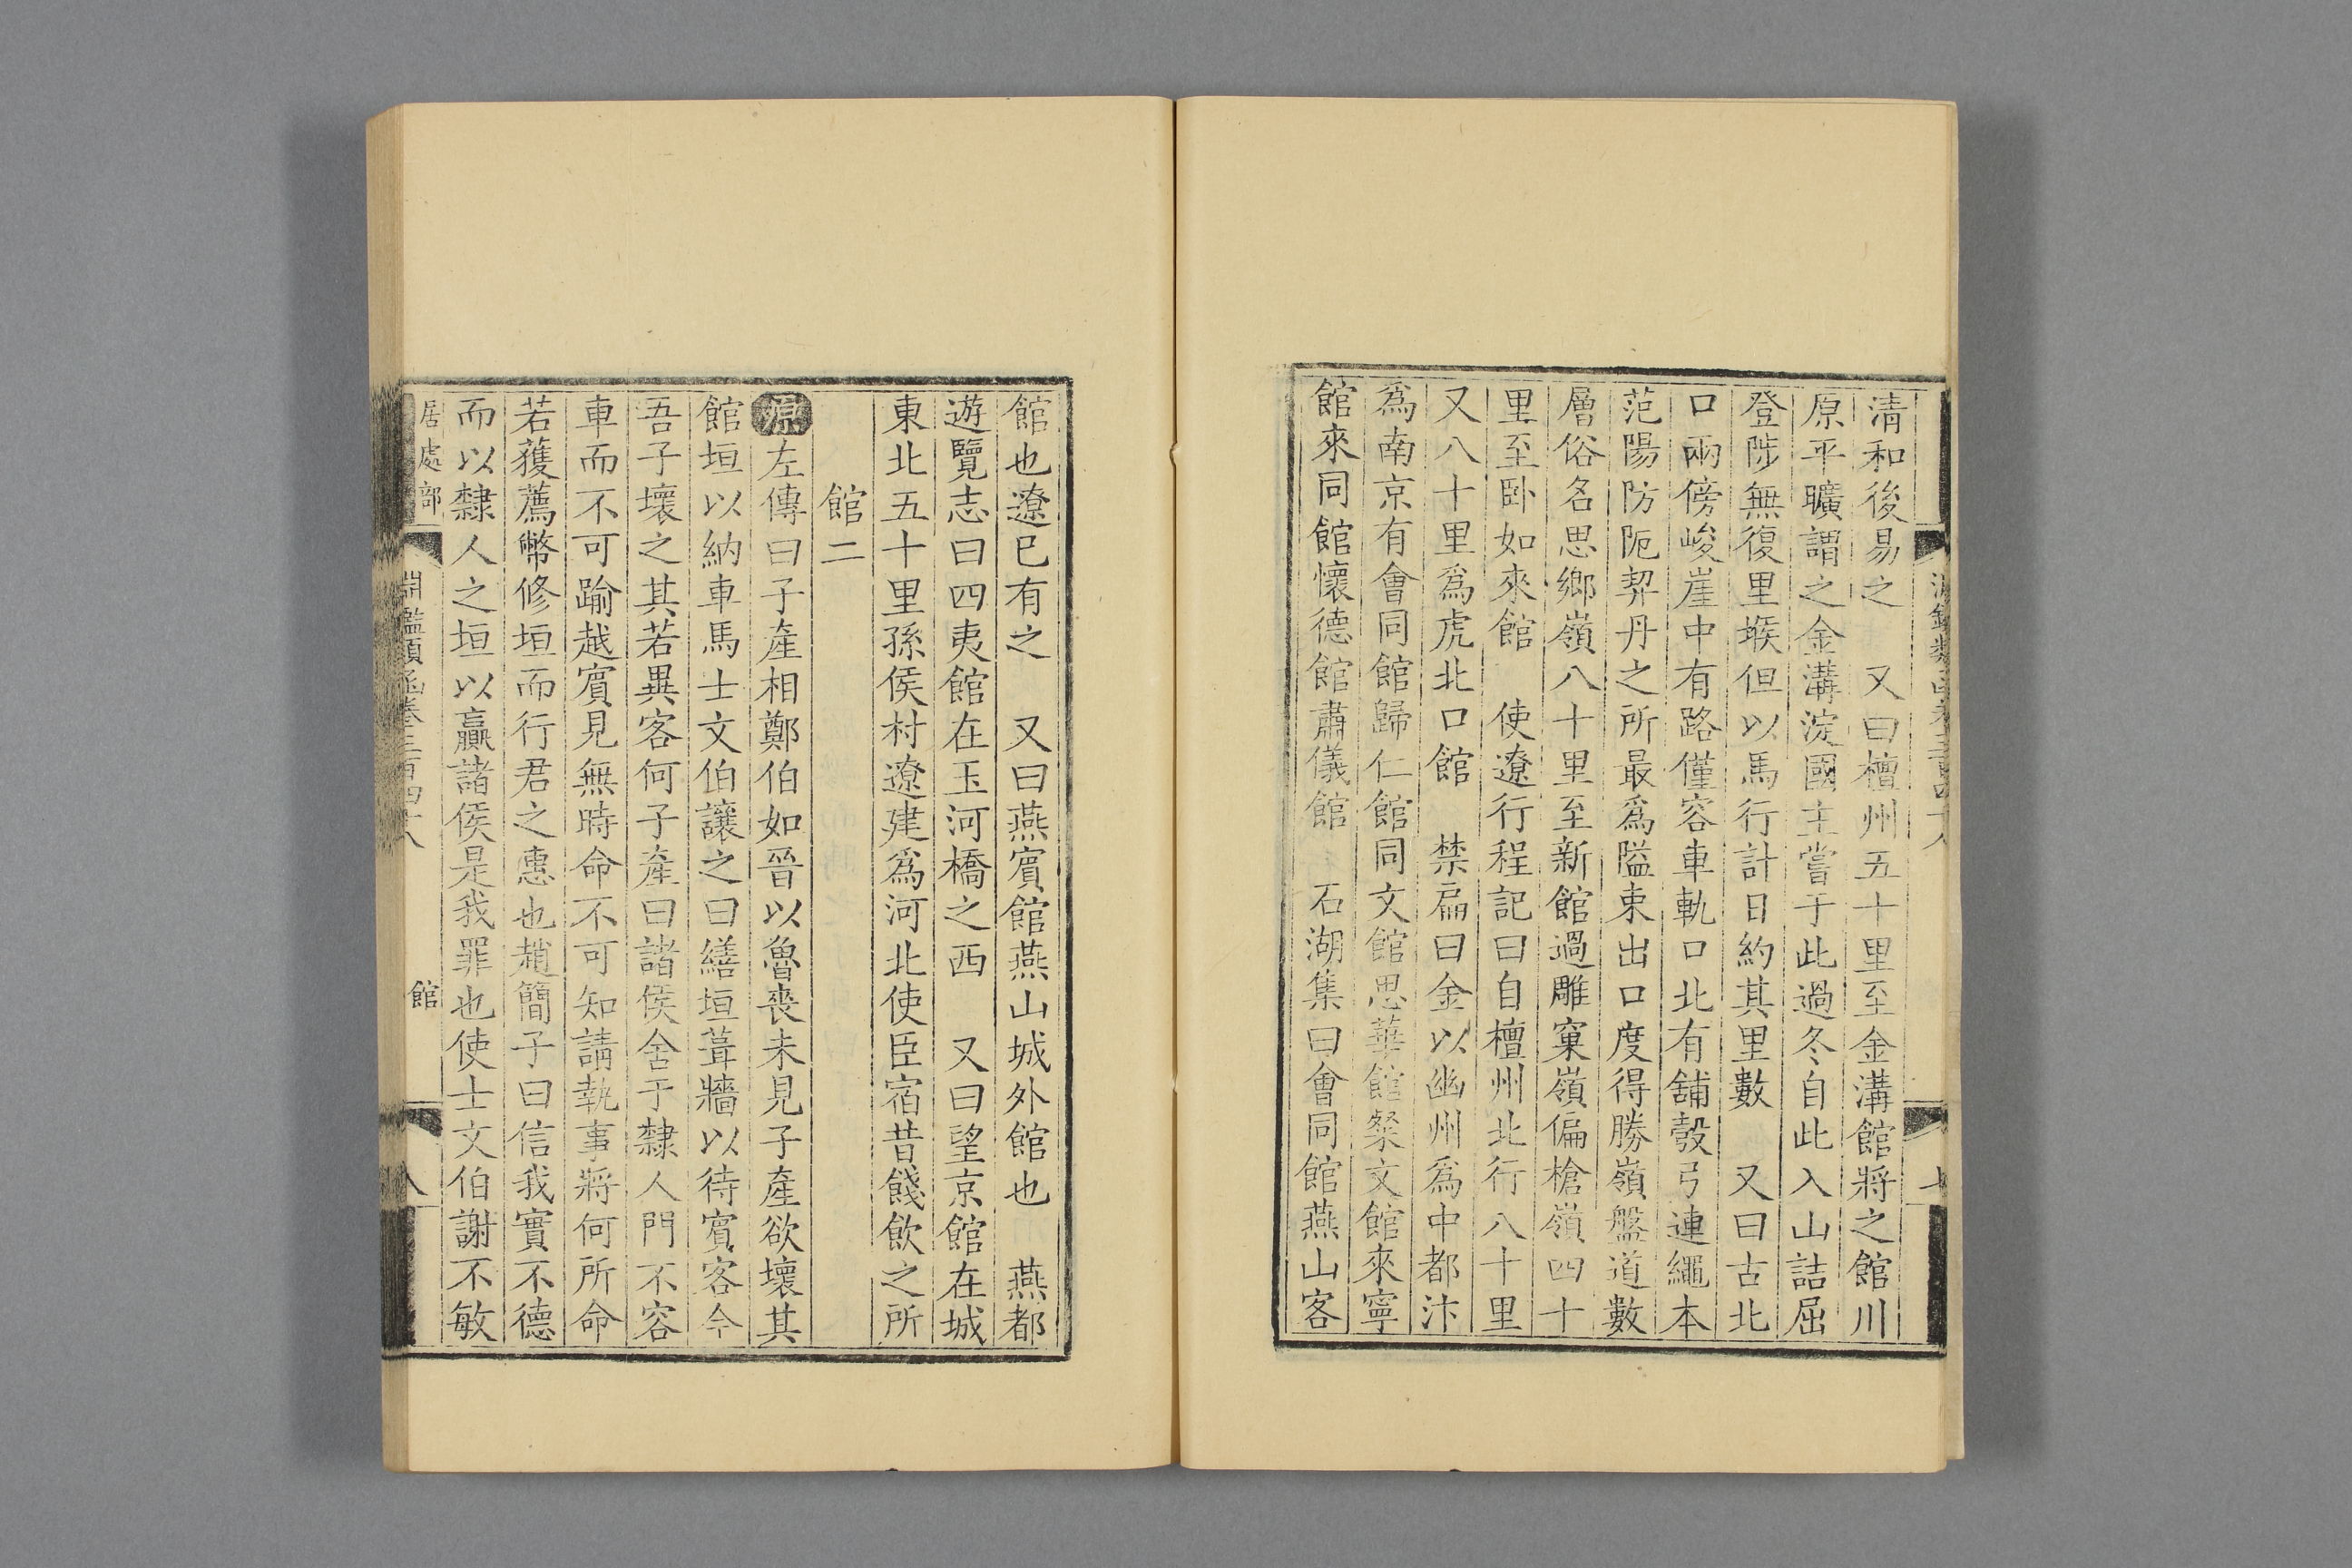 清和後易之　又曰檀州五十里至金溝館將之館川
原平曠謂之金溝淀國主嘗于此過冬自此入山詰屈
登陟無復里堠但以馬行計日約其里數　又曰古北
口兩傍峻崖中有路僅容車軌口北有舖彀弓連繩本
范陽防阨契丹之所最爲隘束出口度得勝嶺盤道數
層俗名思鄉嶺八十里至新館過雕窠嶺偏槍嶺四十
里至卧如來館　使遼行程記曰自檀州北行八十里
又八十里爲虎北口館　禁扁曰金以幽州爲中都汴
爲南京有會同館歸仁館同文館思華館粲文館來寧
館來同館懷德館肅儀館　石湖集曰會同館燕山客
館也遼已有之　又曰燕賓館燕山城外館也　燕都
遊覽志曰四夷館在玉河橋之西　又曰望京館在城
東北五十里孫侯村遼建爲河北使臣宿昔餞飲之所
館二
原左傳曰子產相鄭伯如晉以魯喪未見子產欲壞其
館垣以納車馬士文伯讓之曰繕垣葺牆以待賓客今
吾子壞之其若異客何子產曰諸侯舍于隸人門不容
車而不可踰越賓見無時命不可知請執事將何所命
若獲薦幣修垣而行君之惠也趙簡子曰信我實不德
而以隸人之垣以贏諸侯是我罪也使士文伯謝不敏
居處部　淵鑑類函卷三百四十八　館　八